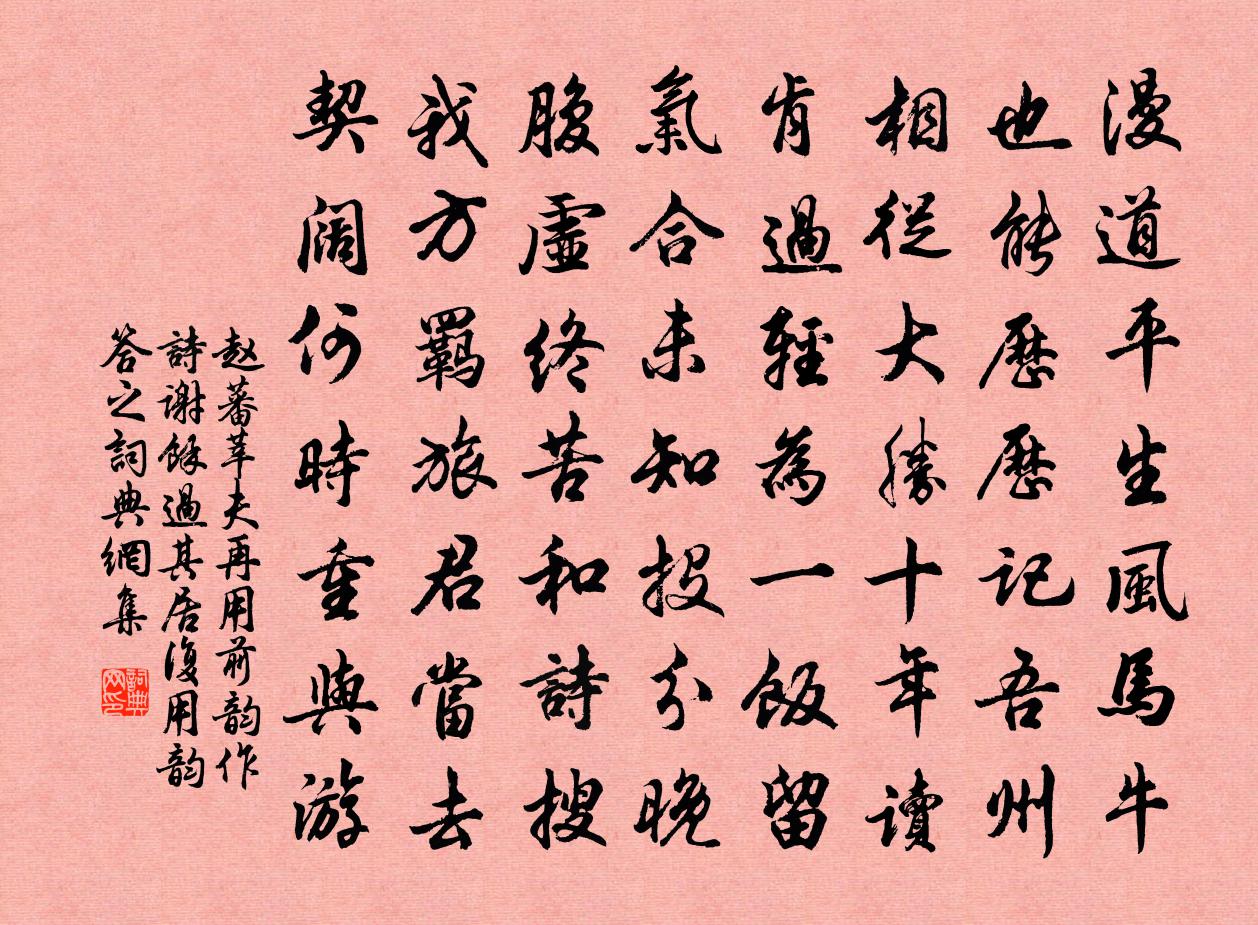 漫道平生風馬牛
也能歷歷記吾州
相從大勝十年讀
肯過輕為一飯留
氣合未知投分晚
腹虛終苦和詩搜
我方羇旅君當去
契阔何時重與游
赵蕃莘夫再用前韵作
詩谢馀過其居復用韵
答之詞典網集
詞典网印